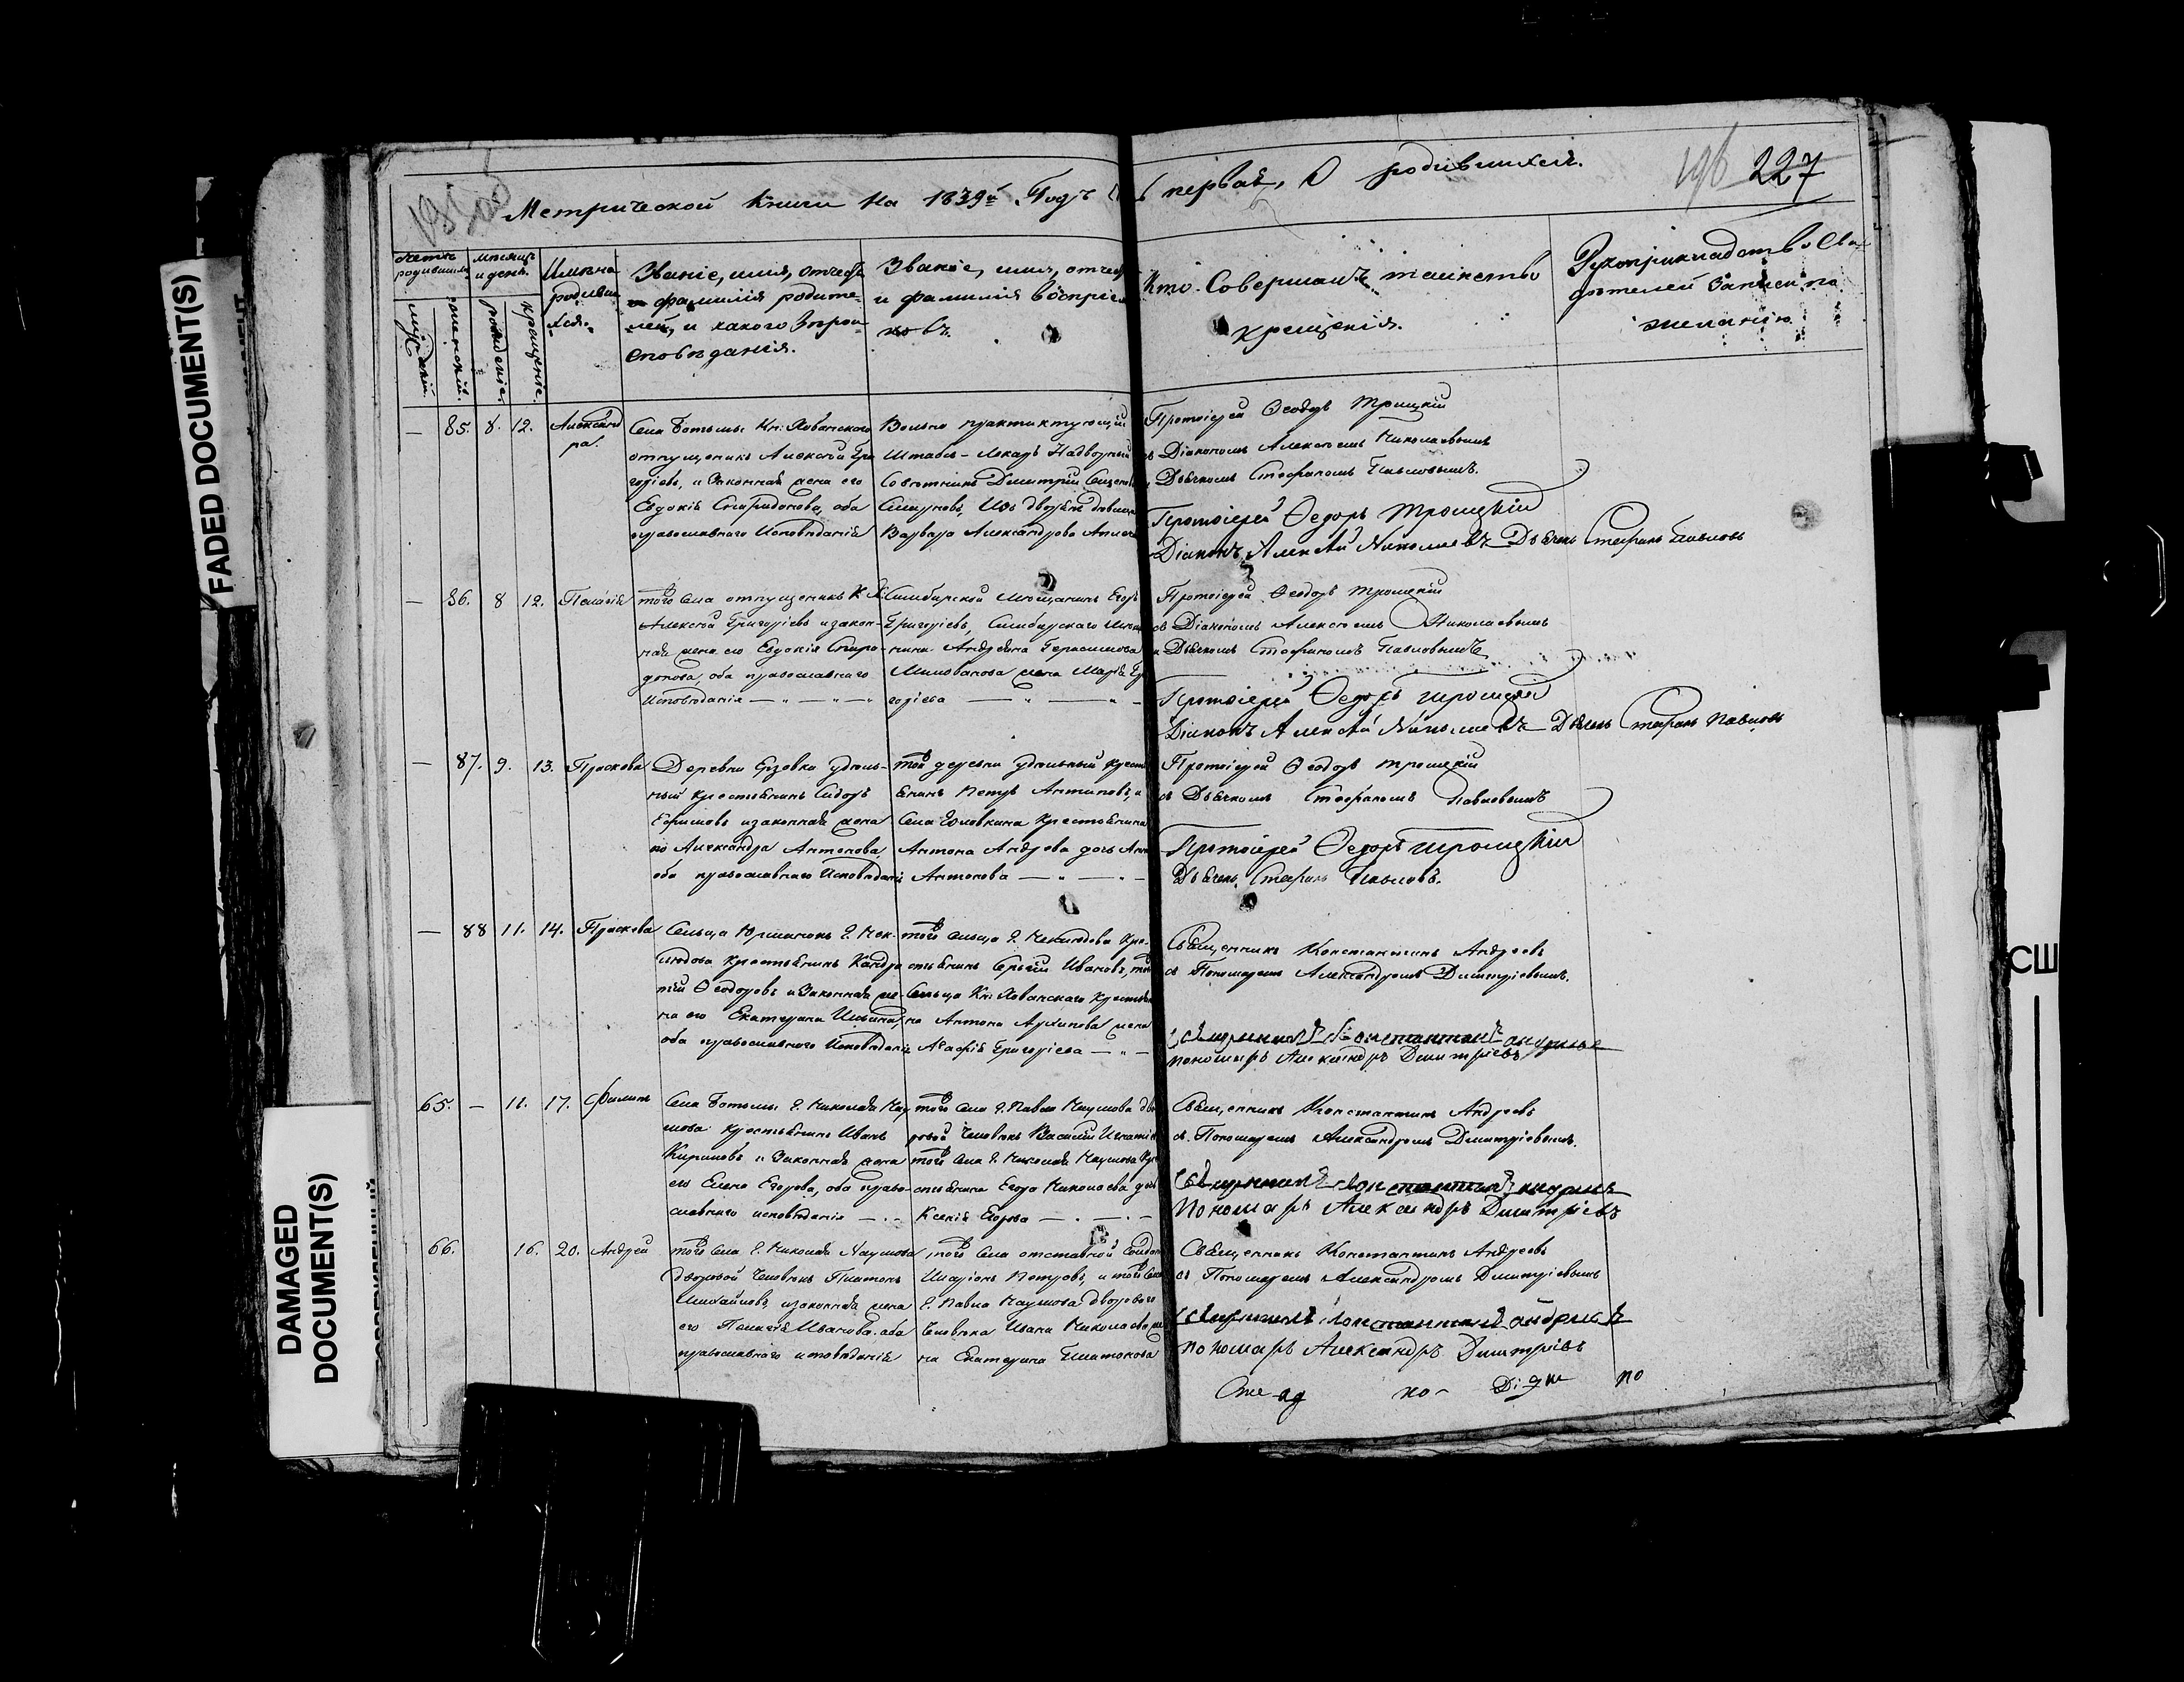 227
Метрической книги на 1839й Годъ первая, О родившихся.
мѣсяцъ и день.
Имена родившихся.
Званіе, имя, отчество и фамилія родителей, и какого Вѣроисповѣданія.
Званіе, имя, отчес
и фамилія воспріем
ковъ.
Кто Совершалъ таинство
крещенія.
Рукоприкладство Сви
дѣтелей записи по
желанію.
мужескій.
женскій.
рожденіе.
крещеніе.
— 85. 8. 12. Александ
ра.
Села Ботьмы Кн: Хованскаго
отпущеникъ Алексѣй Гри
горьевъ, и Законная жена его
Евдокія Спиридонова, оба
православнаго Исповѣданія
Вольно практикующій
Штабъ-Лекарь Надворный
Совѣтникъ Дмитрій
Варвара Александрова
Протоіерей Ѳеодоръ Троицкій
съ Діакономъ Алексѣемъ Николаевымъ
Дьячкомъ Стефаномъ Павловымъ.
Протоіерей Ѳедоръ Троицкій
Діаконъ Алексѣй Николаевъ Дьячекъ Стефанъ Павловъ
— 86. 8 12. Пелагія
того Села отпущеникъ К. Х.
Алексѣй Григорьевъ и закон-
ная жена его Евдокія Спири-
донова, оба православнаго
Исповѣданія
Симбирской Мѣщанинъ Егоръ
Григорьевъ, Симбирскаго
нина Андреяна Герасимова
Милованова жена Марья Гр
горьева
Протоіерей Ѳеодоръ Троицкій
съ Діакономъ Алексѣемъ Николаевымъ
и Дьячкомъ Стефаномъ Павловымъ
Протоіерей Ѳедоръ Троицкій
Діаконъ Алексѣй Николаевъ Дьячекъ Стефанъ Павловъ
— 87. 9. 13. Прасковья
Деревни Ерзовки удѣль-
ный крестьянинъ Сидоръ
Ефимовъ и законная жена
его Александра Антонова,
оба православнаго Исповѣданія
той деревни удѣльный крест
янинъ Петръ Антиповъ, и
Села Головкина Крестьянина
Антона Андреева дочь Анна
Антонова
Протоіерей Ѳеодоръ Троицкій
съ Дьячкомъ Стефаномъ Павловымъ
Протоіерей Ѳедоръ Троицкій
Дьячекъ Стефанъ Павловъ.
— 88 11. 14. Прасковья
Сельца Юрманокъ Г. Нек-
людова крестьянинъ Кондра
тій Ѳеодоровъ и Законная же-
на его Екатерина Ильина,
оба православнаго Исповѣданія
того сельца Г. Неклюдова Кре-
стьянинъ Сергѣй Ивановъ, того
Сельца Кн: Хованскаго Крестьян
на Антона Архипова жена
Агафія Григорьева
Священникъ Константинъ Андреевъ
съ Пономаремъ Александромъ Дмитріевымъ.
Священникъ Константинъ Андреевъ
пономарь Александръ Дмитріевъ
65. — 11. 17. Филипъ
Села Ботьмы Г. Николая Нау
мова крестьянинъ Иванъ
Кириловъ и Законная жена
его Елена Егорова, оба право-
славнаго исповѣданія
того Села Г. Павла Наумова дво
ровой Человѣкъ Василій Игнатіе
того Села Г. Николая Наумова Кре
стьянина Егора Николаева дочь
Ксенія Егорова
Священникъ Константинъ Андреевъ
съ Пономаремъ Александромъ Дмитріевымъ.
Священникъ Константинъ Андреевъ
Пономарь Александръ Дмитріевъ
66. 16. 20. Андрей
того Села Г. Николая Наумова
дворовой Человѣкъ Платонъ
Михайловъ, и законная жена
его Пелагея Иванова, оба
православнаго исповѣданія
того Села отставной Солдат
Иларіонъ Петровъ, и того Села
Г. Павла Наумова дворового
Человѣка Ивана Николаева же
на Екатерина Платонова
Священникъ Константинъ Андреевъ
съ Пономаремъ Александромъ Дмитріевымъ
Священникъ Константинъ Андреевъ
пономарь Александръ Дмитріевъ
FADED DOCUMENT(S)
DAMAGED
DOCUMENT(S)
СШ